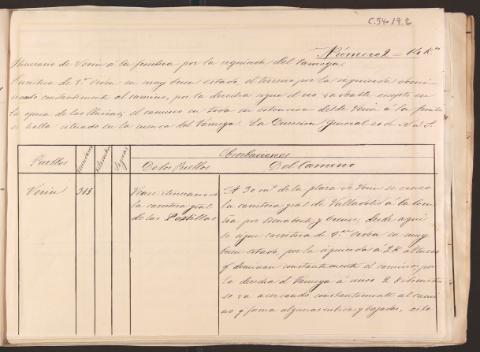 C.54-19.2
Número 2 = 14 Km
Itinerario de Verin á la frontera por la izquierda del Tamega.
Carretera de 1ª orden en muy buen estado, el terreno por la izquierda
constantemente al camino, por la derecha sigue el rio
la epoca de las lluvias; el camino en toda su estension desde Verin á la frontera
se halla situado en la cuenca del Tamega. La Direccion General es de N. á S.
Pueblos
Observaciones
De los Pueblos
Del Camino
Verin
Vease itinerario de
la carretera gral
de las Portillas
Á 30 m. de la plaza de Verin se cruza
la carretera gral de Valladolid á la
por Benabente y Orense, desde aqui
se sigue carretera de 1ª orden en muy
buen estado, por la izquierda á 2 K alturas
q. dominan constantemente el camino; por
la derecha el Tamega á unos 2 Kilometros
se va acercando constantemente al camino
y forma algunas subidas y bajadas,